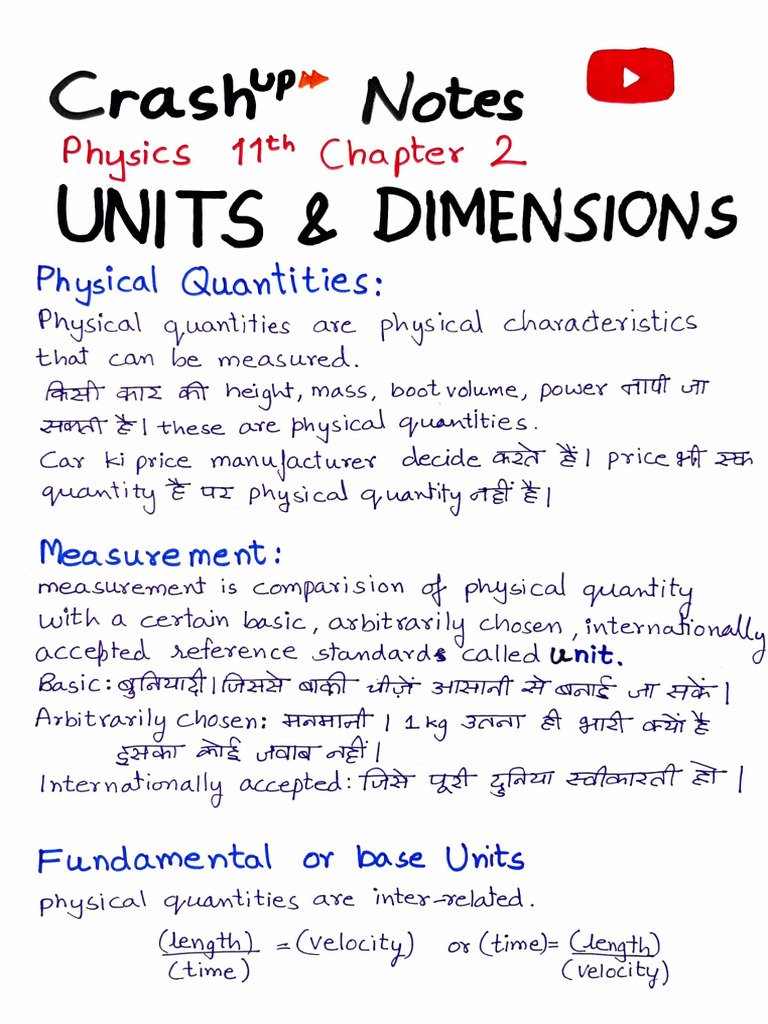 Crash up Notes
Physics 11th Chapter 2
UNITS & DIMENSIONS
Physical Quantities:
Physical quantities are physical characteristics
that can be measured.
किसी कार की height, mass, boot volume, power नापी जा
सकती है। these are physical quantities.
Car ki price manufacturer decide करते हैं। price भी एक
quantity है पर physical quantity नहीं है।
Measurement:
measurement is comparision of physical quantity
with a certain basic, arbitrarily chosen, internationally
accepted reference standards called unit.
Basic: बुनियादी। जिससे बाकी चीज़ें आसानी से बनाई जा सकें।
Arbitrarily chosen: मनमानी। 1 kg उतना ही भारी क्यों है
इसका कोई जवाब नहीं।
Internationally accepted: जिसे पूरी दुनिया स्वीकारती हो।
Fundamental or base Units
physical quantities are inter-related.
(length)/(time) = (velocity) or (time) = (length)/(velocity)